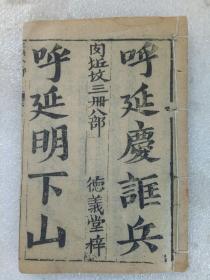 呼延慶誆兵
内近坟三冊八部
德義堂梓
呼延明下山